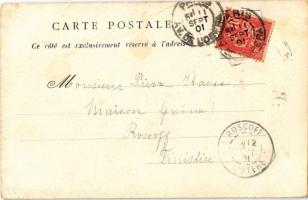 CARTE POSTALE
Ce côté est exclusivement réservé à l'adresse
PARIS
11
SEPT
01
PARIS
11
SEPT
01
Monsieur Pierre
Maison
Roscoff
Finistère
ROSCOFF
12
01
FINISTERE